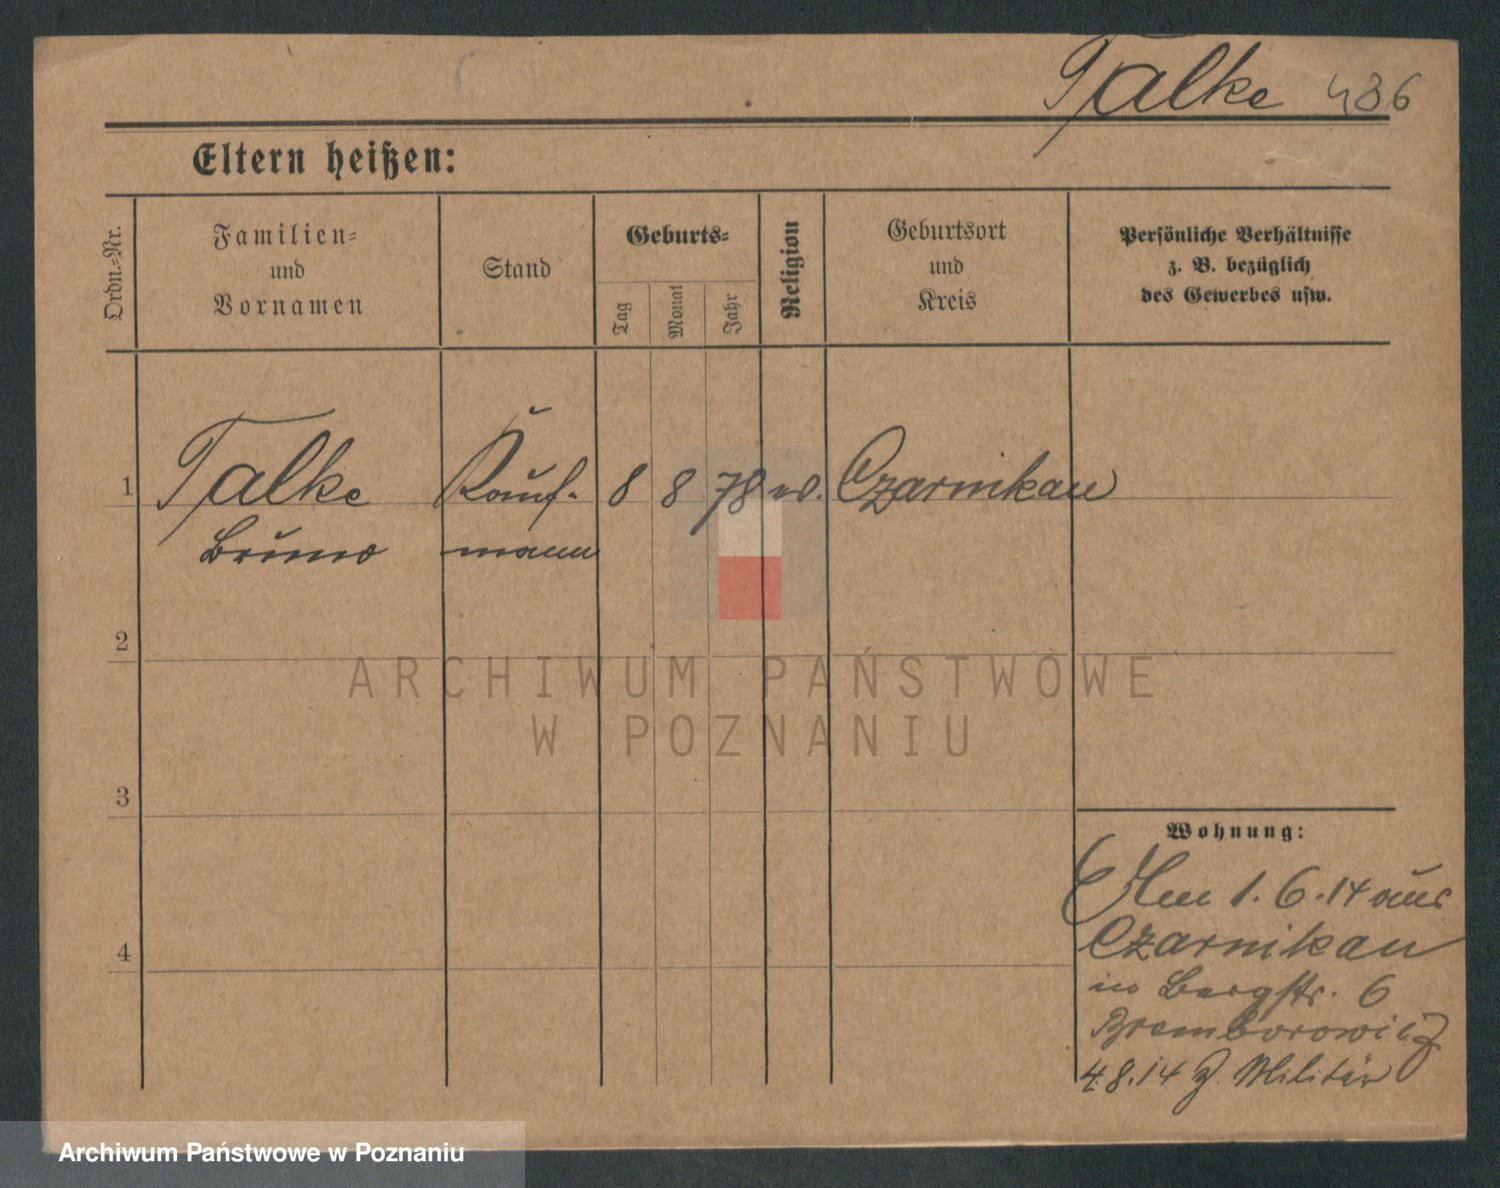 Talke 436
Eltern heißen:
Ordn.=Nr.
Familien=
und
Vornamen
Stand
Geburts=
Tag
Monat
Jahr
Religion
Geburtsort
und
Kreis
Persönliche Verhältnisse
z. B. bezüglich
des Gewerbes usw.
1 Talke Kauf- 8 8 78 ev. Czarnikau
Bruno mann
2
3
4
Wohnung:
1.6.14 aus
Czarnikau
in Bergstr. 6
4.8.14 z. Militär
ARCHIWUM PAŃSTWOWE
W POZNANIU
Archiwum Państwowe w Poznaniu